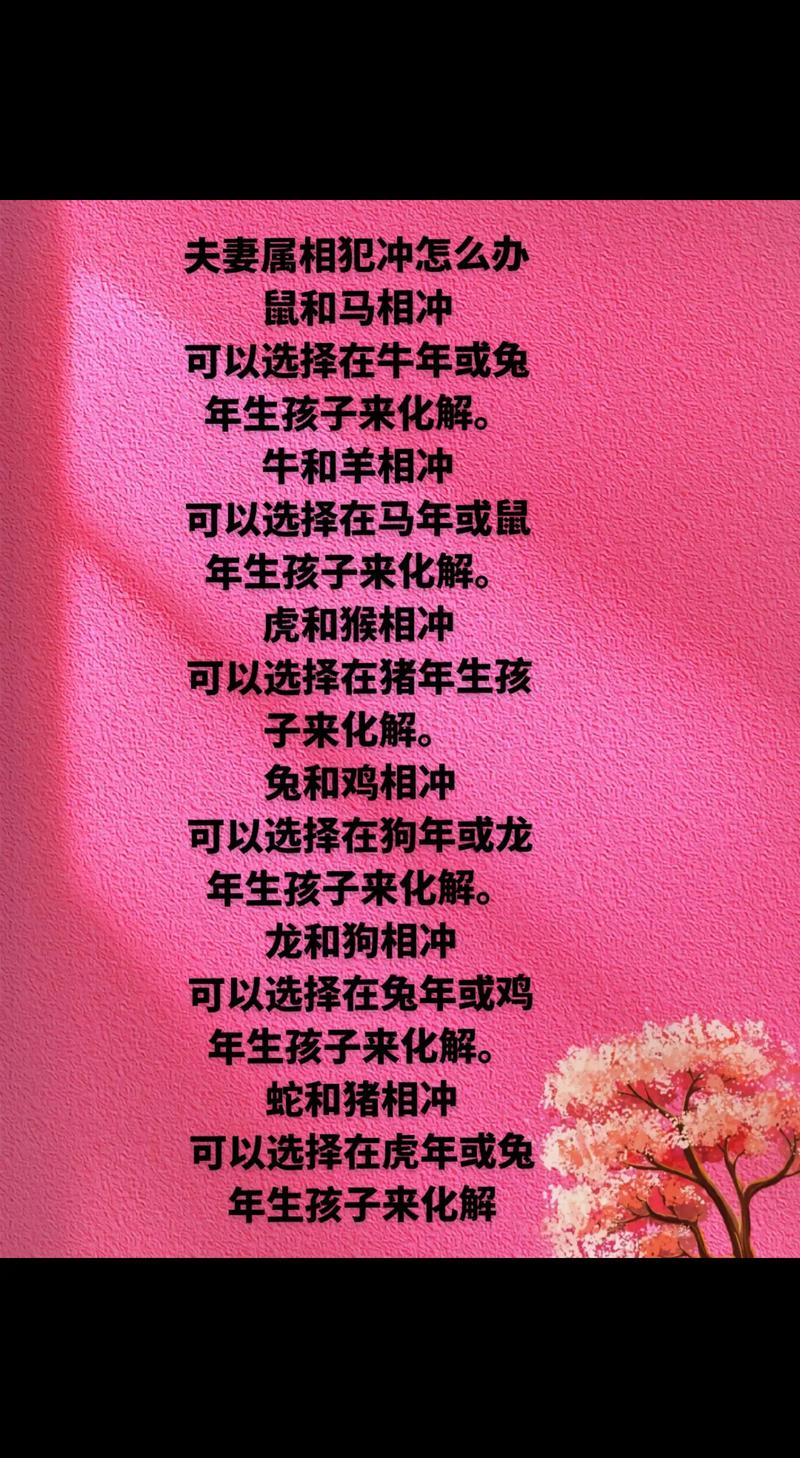 夫妻属相犯冲怎么办
鼠和马相冲
可以选择在牛年或兔
年生孩子来化解。
牛和羊相冲
可以选择在马年或鼠
年生孩子来化解。
虎和猴相冲
可以选择在猪年生孩
子来化解。
兔和鸡相冲
可以选择在狗年或龙
年生孩子来化解。
龙和狗相冲
可以选择在兔年或鸡
年生孩子来化解。
蛇和猪相冲
可以选择在虎年或兔
年生孩子来化解